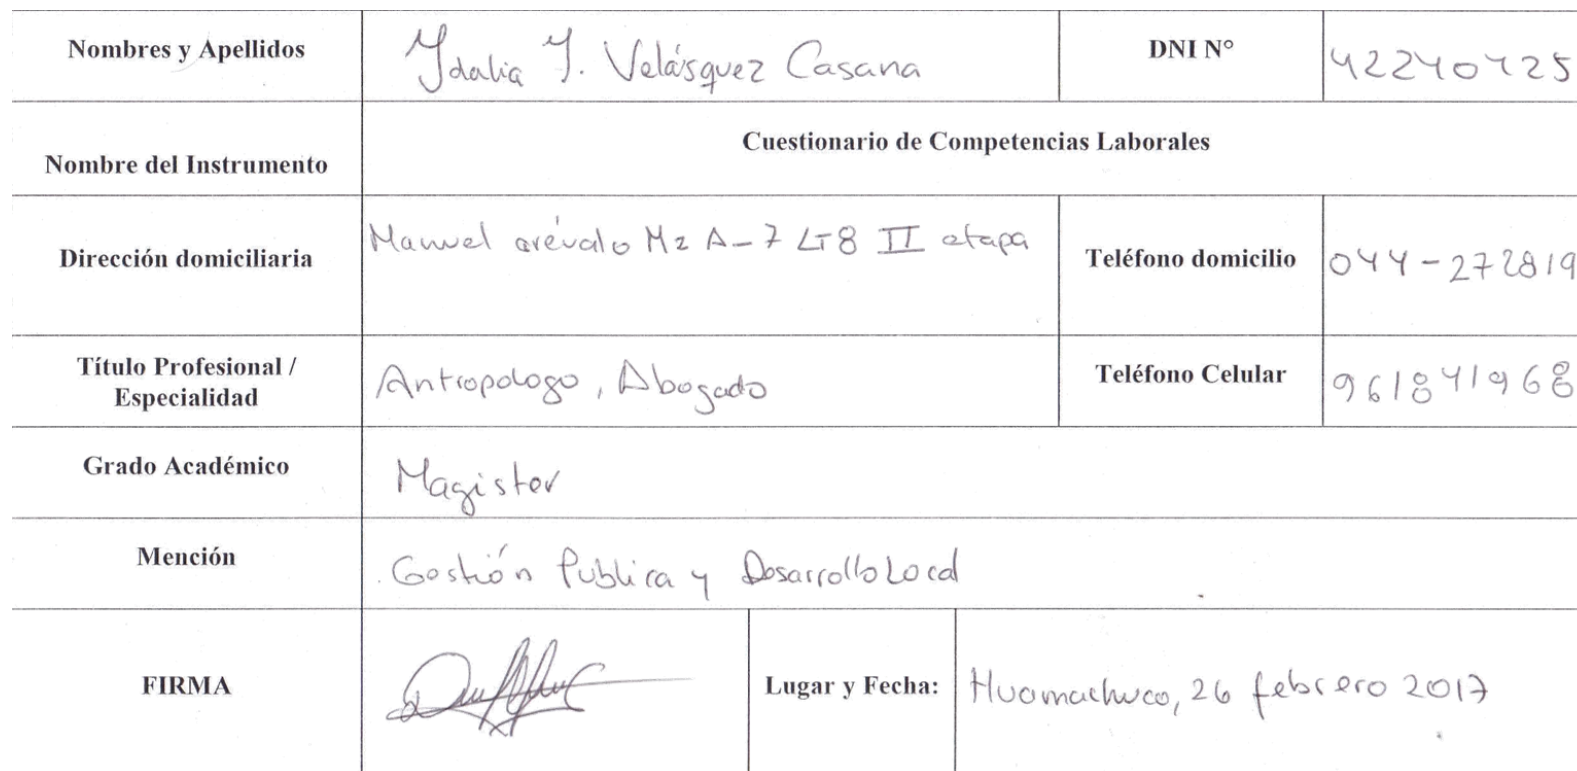 Nombres y Apellidos Ydalia Y. Velásquez Casana DNI N° 42240425
Cuestionario de Competencias Laborales
Nombre del Instrumento
Dirección domiciliaria Manuel arévalo Mz A-7 LT8 II etapa Teléfono domicilio 044-272819
Título Profesional /
Especialidad Antropologo, Abogado Teléfono Celular 961841968
Grado Académico Magister
Mención Gestión Publica y Desarrollo Local
FIRMA Lugar y Fecha: Huamachuco, 26 febrero 2017